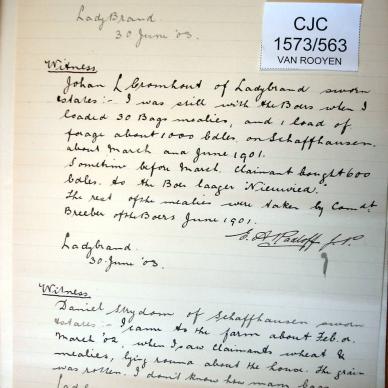 LadyBrand.
30 June '03.
CJC
1573/563
VAN ROOYEN
Witness
Johan L Cromhout of Ladybrand sworn
states:- I was still with the Boers when I
loaded 30 Bags mealies, and 1 load of
forage about 1000 bdles, on Schaffhausen,
about March and June 1901.
Sometime before March claimant bought 600
bdles. to the Boer laager "Nieuwied".
The rest of the mealies were taken by Comdt.
Breeber of the Boers June 1901.
J.P.
Ladybrand.
30 June '03.
Witness.
Daniel Strydom of Schaffhausen sworn
states:- I came to the farm about Feb. or
March '02, when I saw claimants wheat &
mealies, lying round about the house. The grain
was rotten. I don't know how many bags